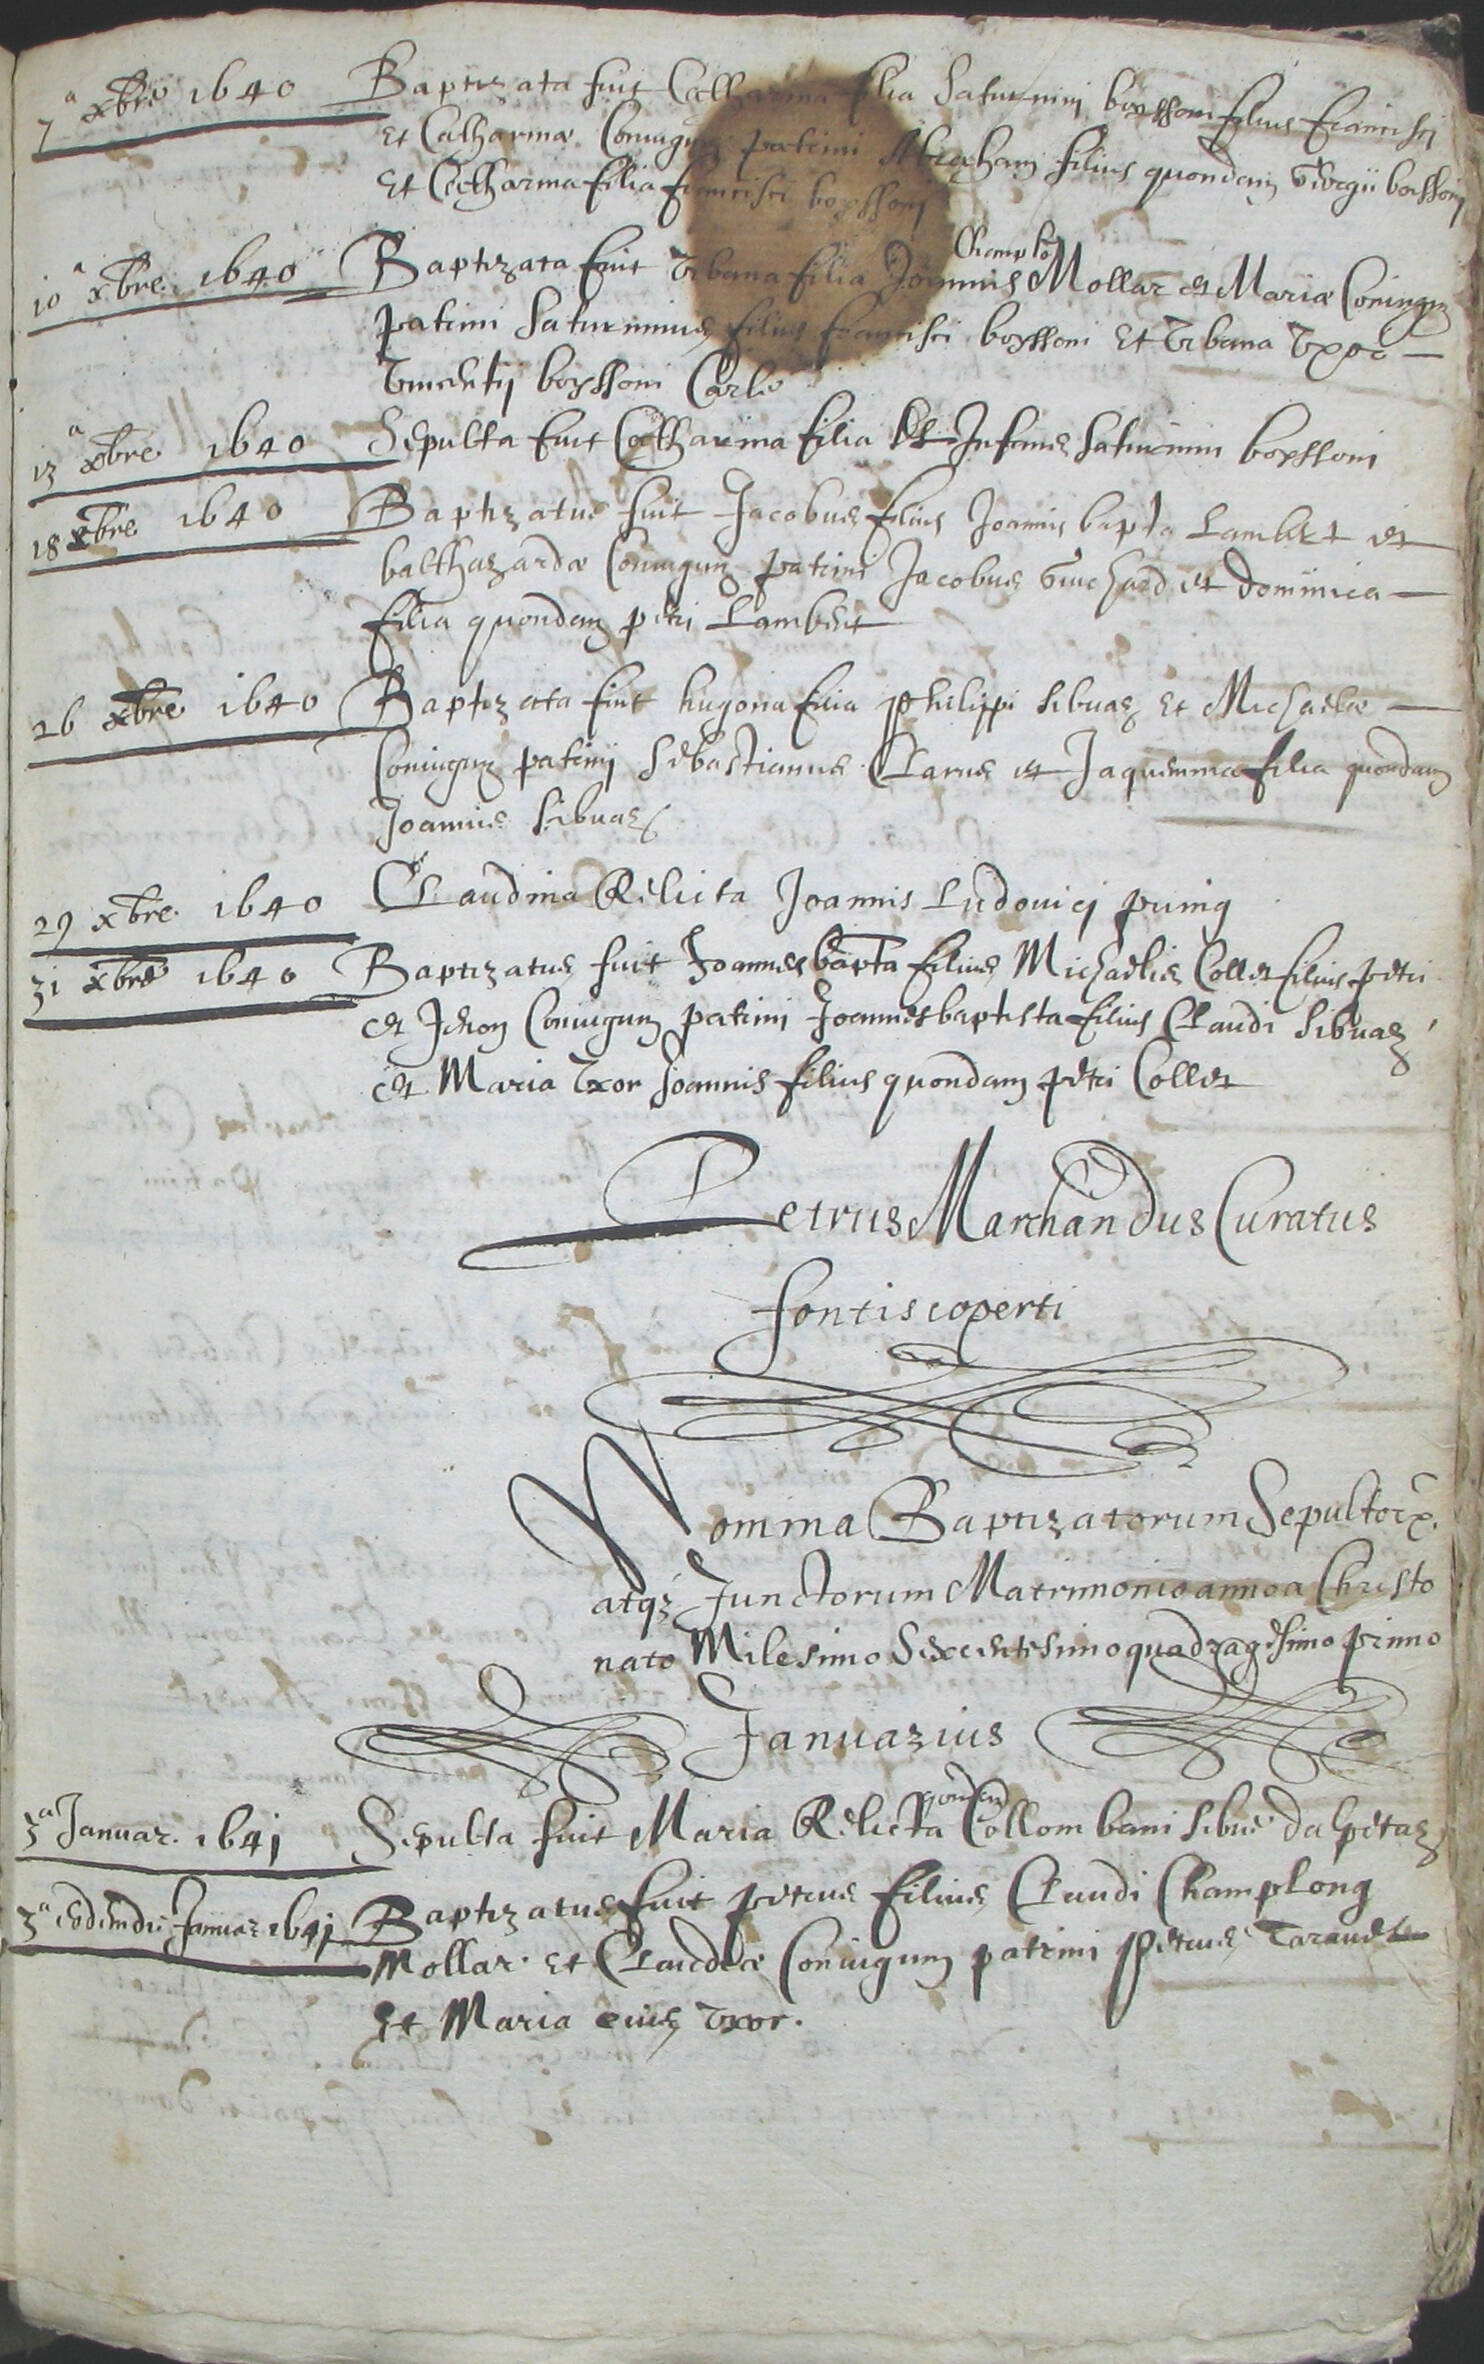 7ª xbre 1640 Baptizata fuit Catharina filia Saturnini boyssoni filius francisci
Et Catharinæ Coniugum patrini Abraham filius quondam boyssoni
Et Catharina filia francisci boyssoni
Champlo
10ª xbre 1640 Baptizata fuit Vrbana filia Joannis Mollar et Mariæ Coniugum
patrini Saturninus filius francisci boyssoni Et Vrbana Vxor
Vincentij boyssoni Carle
13ª xbre 1640 Sepulta fuit Catharina filia Et Infans Saturnini boyssoni
18 xbre 1640 Baptizatus fuit Jacobus filius Joannis bapta Lambert et
balthazardæ Coniugum patrini Jacobus Guichard et Dominica
filia quondam petri Lambert
26 xbre 1640 Baptizata fuit hugona filia philippi sibuaz Et Michaelæ
Coniugum patrini Sebastianus Clarus et Jaquemina filia quondam
Joannis sibuaz
29 xbre 1640 Claudina Relicta Joannis Ludovici
31 xbre 1640 Baptizatus fuit Joannes bapta filius Michaelis Collet filius petri
et Coniugum patrini Joannes baptista filius Claudi sibuaz
et Maria Vxor Joannis filius quondam petri Collet
Petrus Marchandus Curatus
fontiscoperti
Nomina Baptizatorum Sepultorx.
atqz Junctorum Matrimonio anno a Christo
nato Milesimo Sexcentesimo quadragesimo primo
Januarius
quondam
3ª Januar. 1641 Sepulta fuit Maria Relicta Collombani sibue
3ª eodem die Januar 1641 Baptizatus fuit petrus filius Claudi Champlong
Mollar. Et Claudæ Coniugum patrini petrus Taravel
Et Maria eius Vxor.